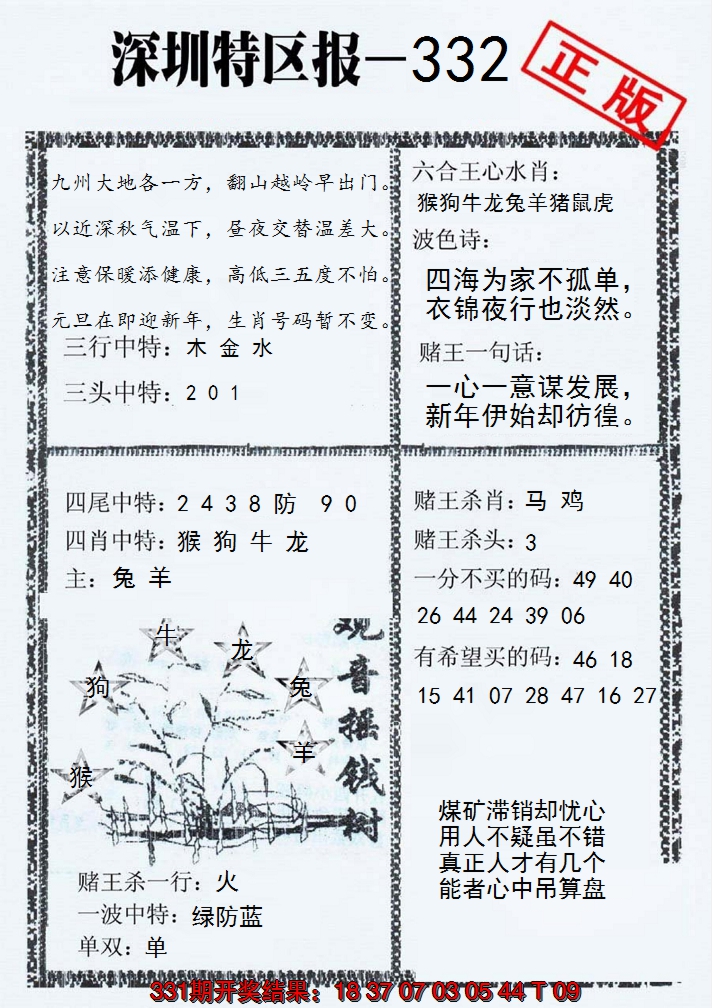 深圳特区报—332
正版
九州大地各一方，翻山越岭早出门。
以近深秋气温下，昼夜交替温差大。
注意保暖添健康，高低三五度不怕。
元旦在即迎新年，生肖号码暂不变。
三行中特：木 金 水
三头中特：2 0 1
六合王心水肖：
猴狗牛龙兔羊猪鼠虎
波色诗：
四海为家不孤单，
衣锦夜行也淡然。
赌王一句话：
一心一意谋发展，
新年伊始却彷徨。
四尾中特：2 4 3 8 防 9 0
四肖中特：猴 狗 牛 龙
主：兔 羊
牛
龙
狗
兔
羊
猴
观音摇钱树
赌王杀一行：火
一波中特：绿防蓝
单双：单
赌王杀肖：马 鸡
赌王杀头：3
一分不买的码：49 40
26 44 24 39 06
有希望买的码：46 18
15 41 07 28 47 16 27
煤矿滞销却忧心
用人不疑虽不错
真正人才有几个
能者心中吊算盘
331期开奖结果：18 37 07 03 05 44 T 09